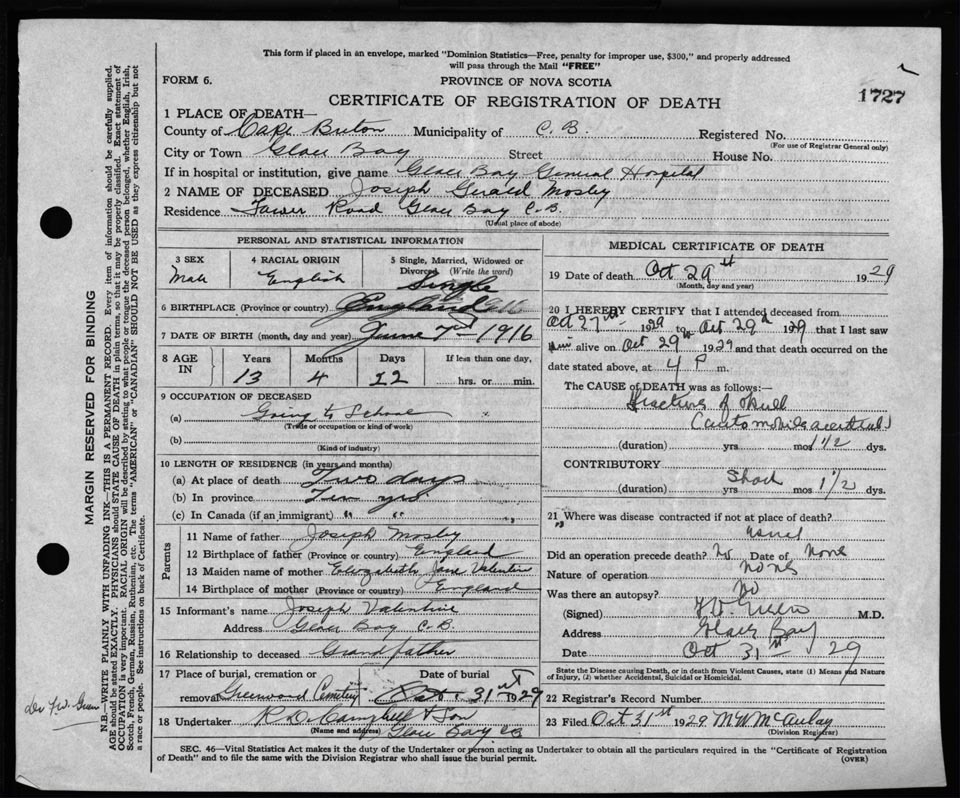 This form if placed in an envelope, marked "Dominion Statistics—Free, penalty for improper use, $300," and properly addressed
will pass through the Mail "FREE"
FORM 6.
PROVINCE OF NOVA SCOTIA
CERTIFICATE OF REGISTRATION OF DEATH
1727
1 PLACE OF DEATH—
County of Cape Breton Municipality of C. B. Registered No.
(For use of Registrar General only)
City or Town Glace Bay Street House No.
If in hospital or institution, give name Glace Bay General Hospital
2 NAME OF DECEASED Joseph Gerald Mosley
Residence Tower Road Glace Bay C.B.
(Usual place of abode)
PERSONAL AND STATISTICAL INFORMATION
3 SEX
Male
4 RACIAL ORIGIN
English
5 Single, Married, Widowed or
Divorced (Write the word)
Single
6 BIRTHPLACE (Province or country) England
7 DATE OF BIRTH (month, day and year) June 7 1916
8 AGE IN
Years Months Days If less than one day,
13 4 22 hrs. or min.
9 OCCUPATION OF DECEASED
(a) Going to School
(Trade or occupation or kind of work)
(b)
(Kind of industry)
10 LENGTH OF RESIDENCE (in years and months)
(a) At place of death Two days
(b) In province Ten yrs
(c) In Canada (if an immigrant) " "
Parents
11 Name of father Joseph Mosley
12 Birthplace of father (Province or country) England
13 Maiden name of mother Elizabeth Jane Valentine
14 Birthplace of mother (Province or country) England
15 Informant's name Joseph Valentine
Address Glace Bay C.B.
16 Relationship to deceased Grandfather
17 Place of burial, cremation or Date of burial
removal Greenwood Cemetery Oct. 31st 1929
18 Undertaker R.D. Campbell & Son
(Name and address) Glace Bay CB
MEDICAL CERTIFICATE OF DEATH
19 Date of death Oct 29th 1929
(Month, day and year)
20 I HEREBY CERTIFY that I attended deceased from
Oct 27th 1929 to Oct 29th 1929 that I last saw
him alive on Oct 29th 1929 and that death occurred on the
date stated above, at 4 P m.
The CAUSE of DEATH was as follows:—
Fracture of Skull
(automobile accidental)
(duration) yrs mos 1 1/2 dys.
CONTRIBUTORY
Shock
(duration) yrs mos 1 1/2 dys.
21 Where was disease contracted if not at place of death?
Did an operation precede death? No Date of None
Nature of operation None
Was there an autopsy? No
(Signed) F.W. Green M.D.
Address Glace Bay
Date Oct 31st 29
State the Disease causing Death, or in death from Violent Causes, state (1) Means and Nature
of Injury, (2) whether Accidental, Suicidal or Homicidal.
22 Registrar's Record Number
23 Filed Oct 31st 1929 M W McAulay
(Division Registrar)
SEC. 46—Vital Statistics Act makes it the duty of the Undertaker or person acting as Undertaker to obtain all the particulars required in the "Certificate of Registration
of Death" and to file the same with the Division Registrar who shall issue the burial permit.
(OVER)
MARGIN RESERVED FOR BINDING
N.B.—WRITE PLAINLY WITH UNFADING INK—THIS IS A PERMANENT RECORD. Every item of information should be carefully supplied.
AGE should be stated EXACTLY. PHYSICIANS should STATE CAUSE OF DEATH in plain terms, so that it may be properly classified. Exact statement of
OCCUPATION is very important. RACIAL ORIGIN will be described by stating to what people or tongue the deceased person belonged, whether English, Irish,
Scotch, French, German, Russian, Ruthenian, etc. The terms "AMERICAN" or "CANADIAN" SHOULD NOT BE USED as they express citizenship but not
a race or people. See instructions on back of Certificate.
Dr F.W. Green